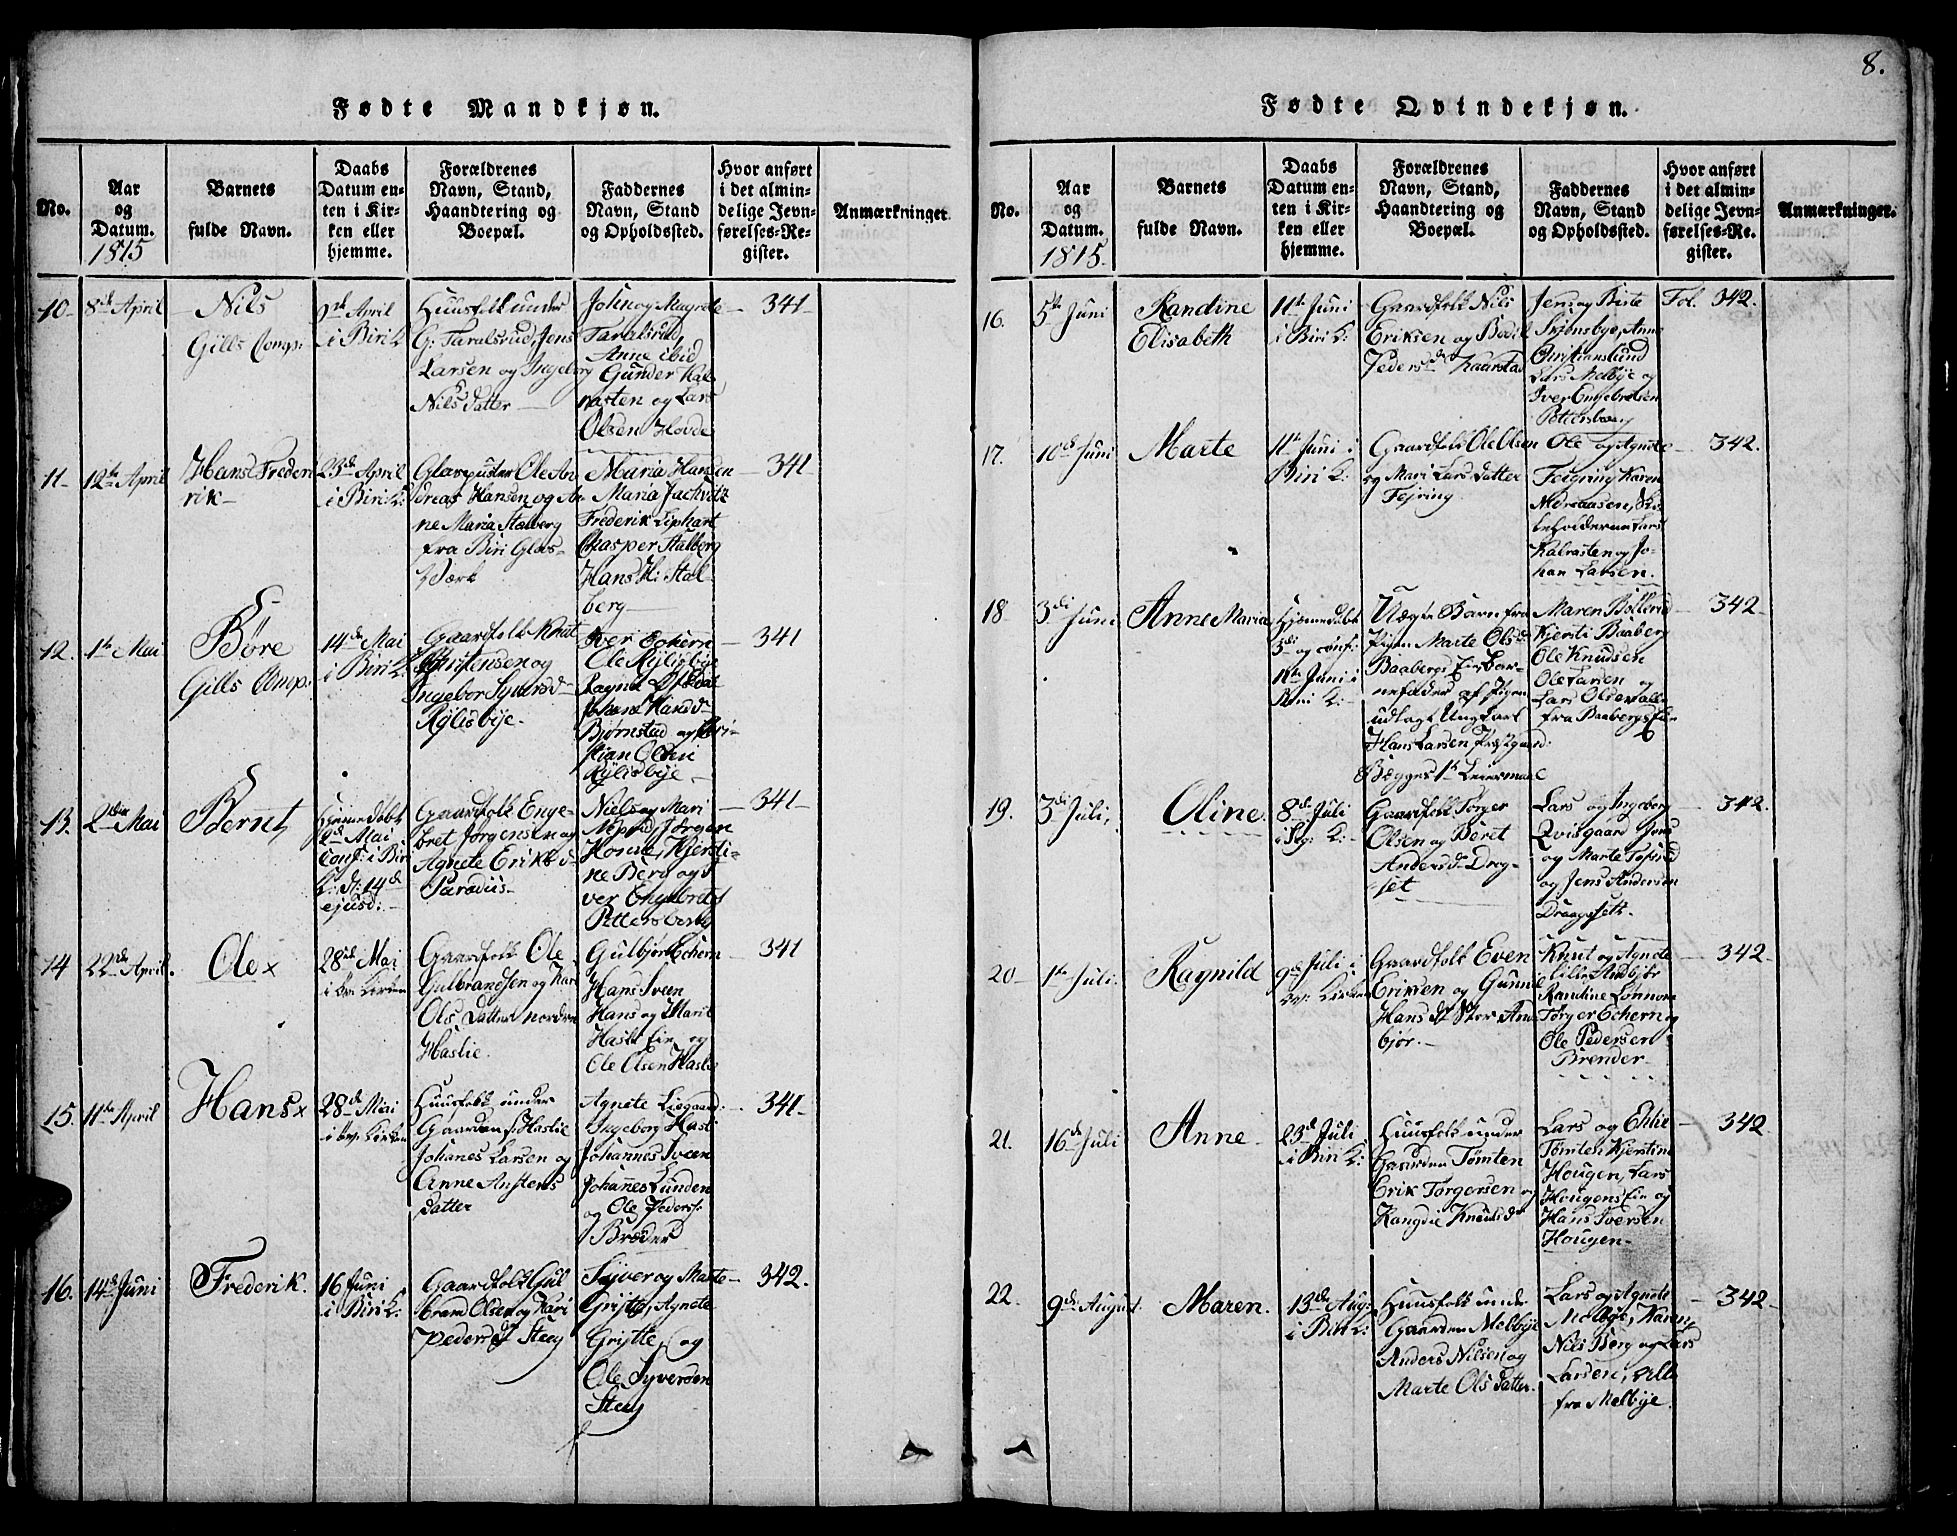 8.
Fødte Mandkjøn.
No.
Aar
og
Datum.
1815
Barnets
fulde Navn.
Daabs
Datum en-
ten i Kir-
ken eller
hjemme.
Forældrenes
Navn, Stand,
Haandtering og
Boepæl.
Faddernes
Navn, Stand
og Opholdssted.
Hvor anført
i det almin-
delige Jevn-
førelses-Re-
gister.
Anmærkninger
10-
8de April
Nils
Gills Comp:
9de April
i Biri K:
Huusfolk under
G: Taralsrud, Jens
Larsen og Ingeborg
Nilsdatter
John og Magrete
Taralsrud,
Anne ibid
Gunder Kal-
rasten og Lars
Olsen Hovde
341
11-
12te April
Hans Frede
rik
23de April
i Biri K:
Glaspuster Ole An-
dreas Hansen og An-
ne Maria Stalberg
fra Biri Glas-
Værk
Maria Hansen
Maria
Frederik Liphart
Chasper Stalberg
Hans Hi Stal-
berg
341
12.
1te Mai
Børe
Gills Comp:
14de Mai
i Biri K:
Gaardfolk Knut
Christensen og
Ingebor Syversd
Rÿlisbÿe.
Iver Echern
Ole Rÿlisbÿe
Ragne
Johane
Bjørnstad og Kri-
stian Olsen
Rÿlisbÿe
341
13.
2den Mai
Bernt
Hjemmedøbt
2de Mai
Conf: i Biri
K: d: 14de
ejusd:
Gaardfolk Enge-
bret Jørgensen og
Agnete Eriksd
Paradiis
Niels og Mari
Jørgen
Honne, Kjersti-
ne Berg og I
ver Engebrets
Pettersberg
341
14
22de April.
Ole x
28de Mai
i Kirken
Gaardfolk Ole
Gulbrandsen og Kari
Ols Datter nordre
Haslie.
Gulbjør Echern
Hans Sveen
Hans og Marit
Hasli Eie og
Ole Olsen Hasli
341
15.
11te April
Hans x
28de Mai
i Kirken
Huusfolk under
Gaarden Haslie
Johanes Larsen og
Anne Anstens
datter
Agnete Liegaard
Ingeborg Hasli
Johannes Sveen
Johañes Lunden
og Ole Peders:
Bræder
341
16.
14de Juni
Frederik.
16 Juni
i Biri K:
Gaardfolk Gul
brand Olsen og Kari
Peders d Steeg
Syver og Marte
Grÿtte, Agnete
Grÿtte, og
Ole Syversen
Steeg
342.
Fødte Qvindekjøn.
No.
Aar
og
Datum.
1815.
Barnets
fulde Navn.
Daabs
Datum en-
ten i Kir-
ken eller
hjemme.
Forældrenes
Navn, Stand,
Haandtering og
Boepæl.
Faddernes
Navn, Stand
og Opholdssted.
Hvor anført
i det almin-
delige Jevn-
førelses-Re-
gister.
Anmærkninger.
16.
5te Juni
Randine
Elisabeth
11te Juni
i Biri K:
Gaardfolk Nils
Eriksen og Bodil
Pedersd Kaarstad
Jens og Birte
Skjønsbye, Anne
Christianslund
Lars Melbÿe og
Iver Engebretsen
Pettersberg
Fol. 342.
17.
10de Juni
Marte
11te Juni i
Biri K:
Gaardfolk Ole Olsen
og Mari Lars datter
Fejring
Ole og Agnete
Feiring Karen
Nedreaasen, Sko
leholderne Lars
Kalrasten og Jo-
han Larsen.
342.
18
3di Juni
Anne Maria
Hjemmedøbt
3di og conf:
11te Juni i
Biri K:
Uægte Barn fra
Pigen Marte Olsd
Baabergs Eie Bar-
nefader af Pigen
udlagt Ung Karl
Hans Larsen Præstgaard:
Begges 1te Leiermaal
Maren Bollerud
Kjersti Baaberg
Ole Knudsen
Ole Larsen og
Lars Olsen alle
fra Baabergs Eie
342
19.
3di Juli,
Oline.
8de Juli
i K:
Gaardfolk Torger
Olsen og Beret
Andersd Drog-
set
Lars og Ingeborg
Qvisgaard Jens
og Marte Tofsrud
og Jens Andersen
Draagseth.
342.
20-
1te Juli.
Ragnild
9de Juli i
Kirken
Gaardfolk Even
Eriksen og Gunnil
Hans dt Stor And
bjør.
Knut og Agnete
Lille Andbjør
Randine Lønnom
Torger Echern og
Ole Pedersen
Brender
342
21.
16de Juli
Anne
23de Juli
i Biri K:
Huusfolk under
Gaarden Tømten
Erik Torgersen og
Rangdie Knudsd
Lars og Ehlie
Tømten Kjerstine
Hougen, Lars
Hougens Eie og
Hans Iversen
Hougen
342
22.
9de August.
Maren.
13de Augs
i Biri K:
Huusfolk under
Gaarden Melbÿe
Anders Nilsen og
Marte Ols datter.
Lars og Agnete
Melbÿe, Karen,
Nils Berg og Lars
Larsen, alle
fra Melbÿe.
342